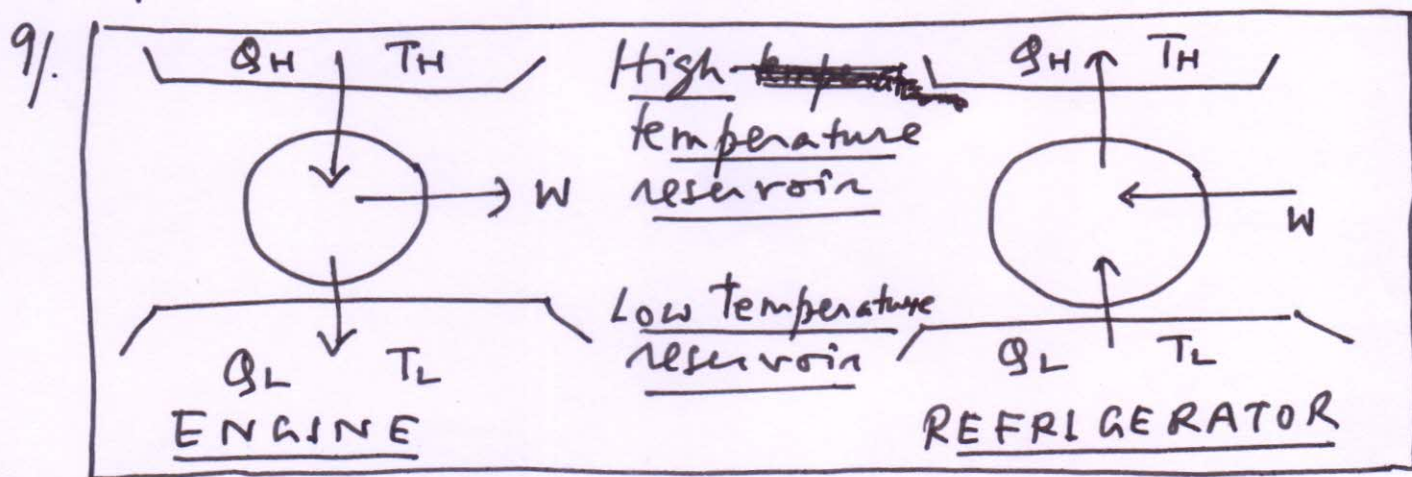 9/.
QH TH
W
QL TL
ENGINE
High
temperature
reservoir
Low Temperature
reservoir
QH TH
W
QL TL
REFRIGERATOR